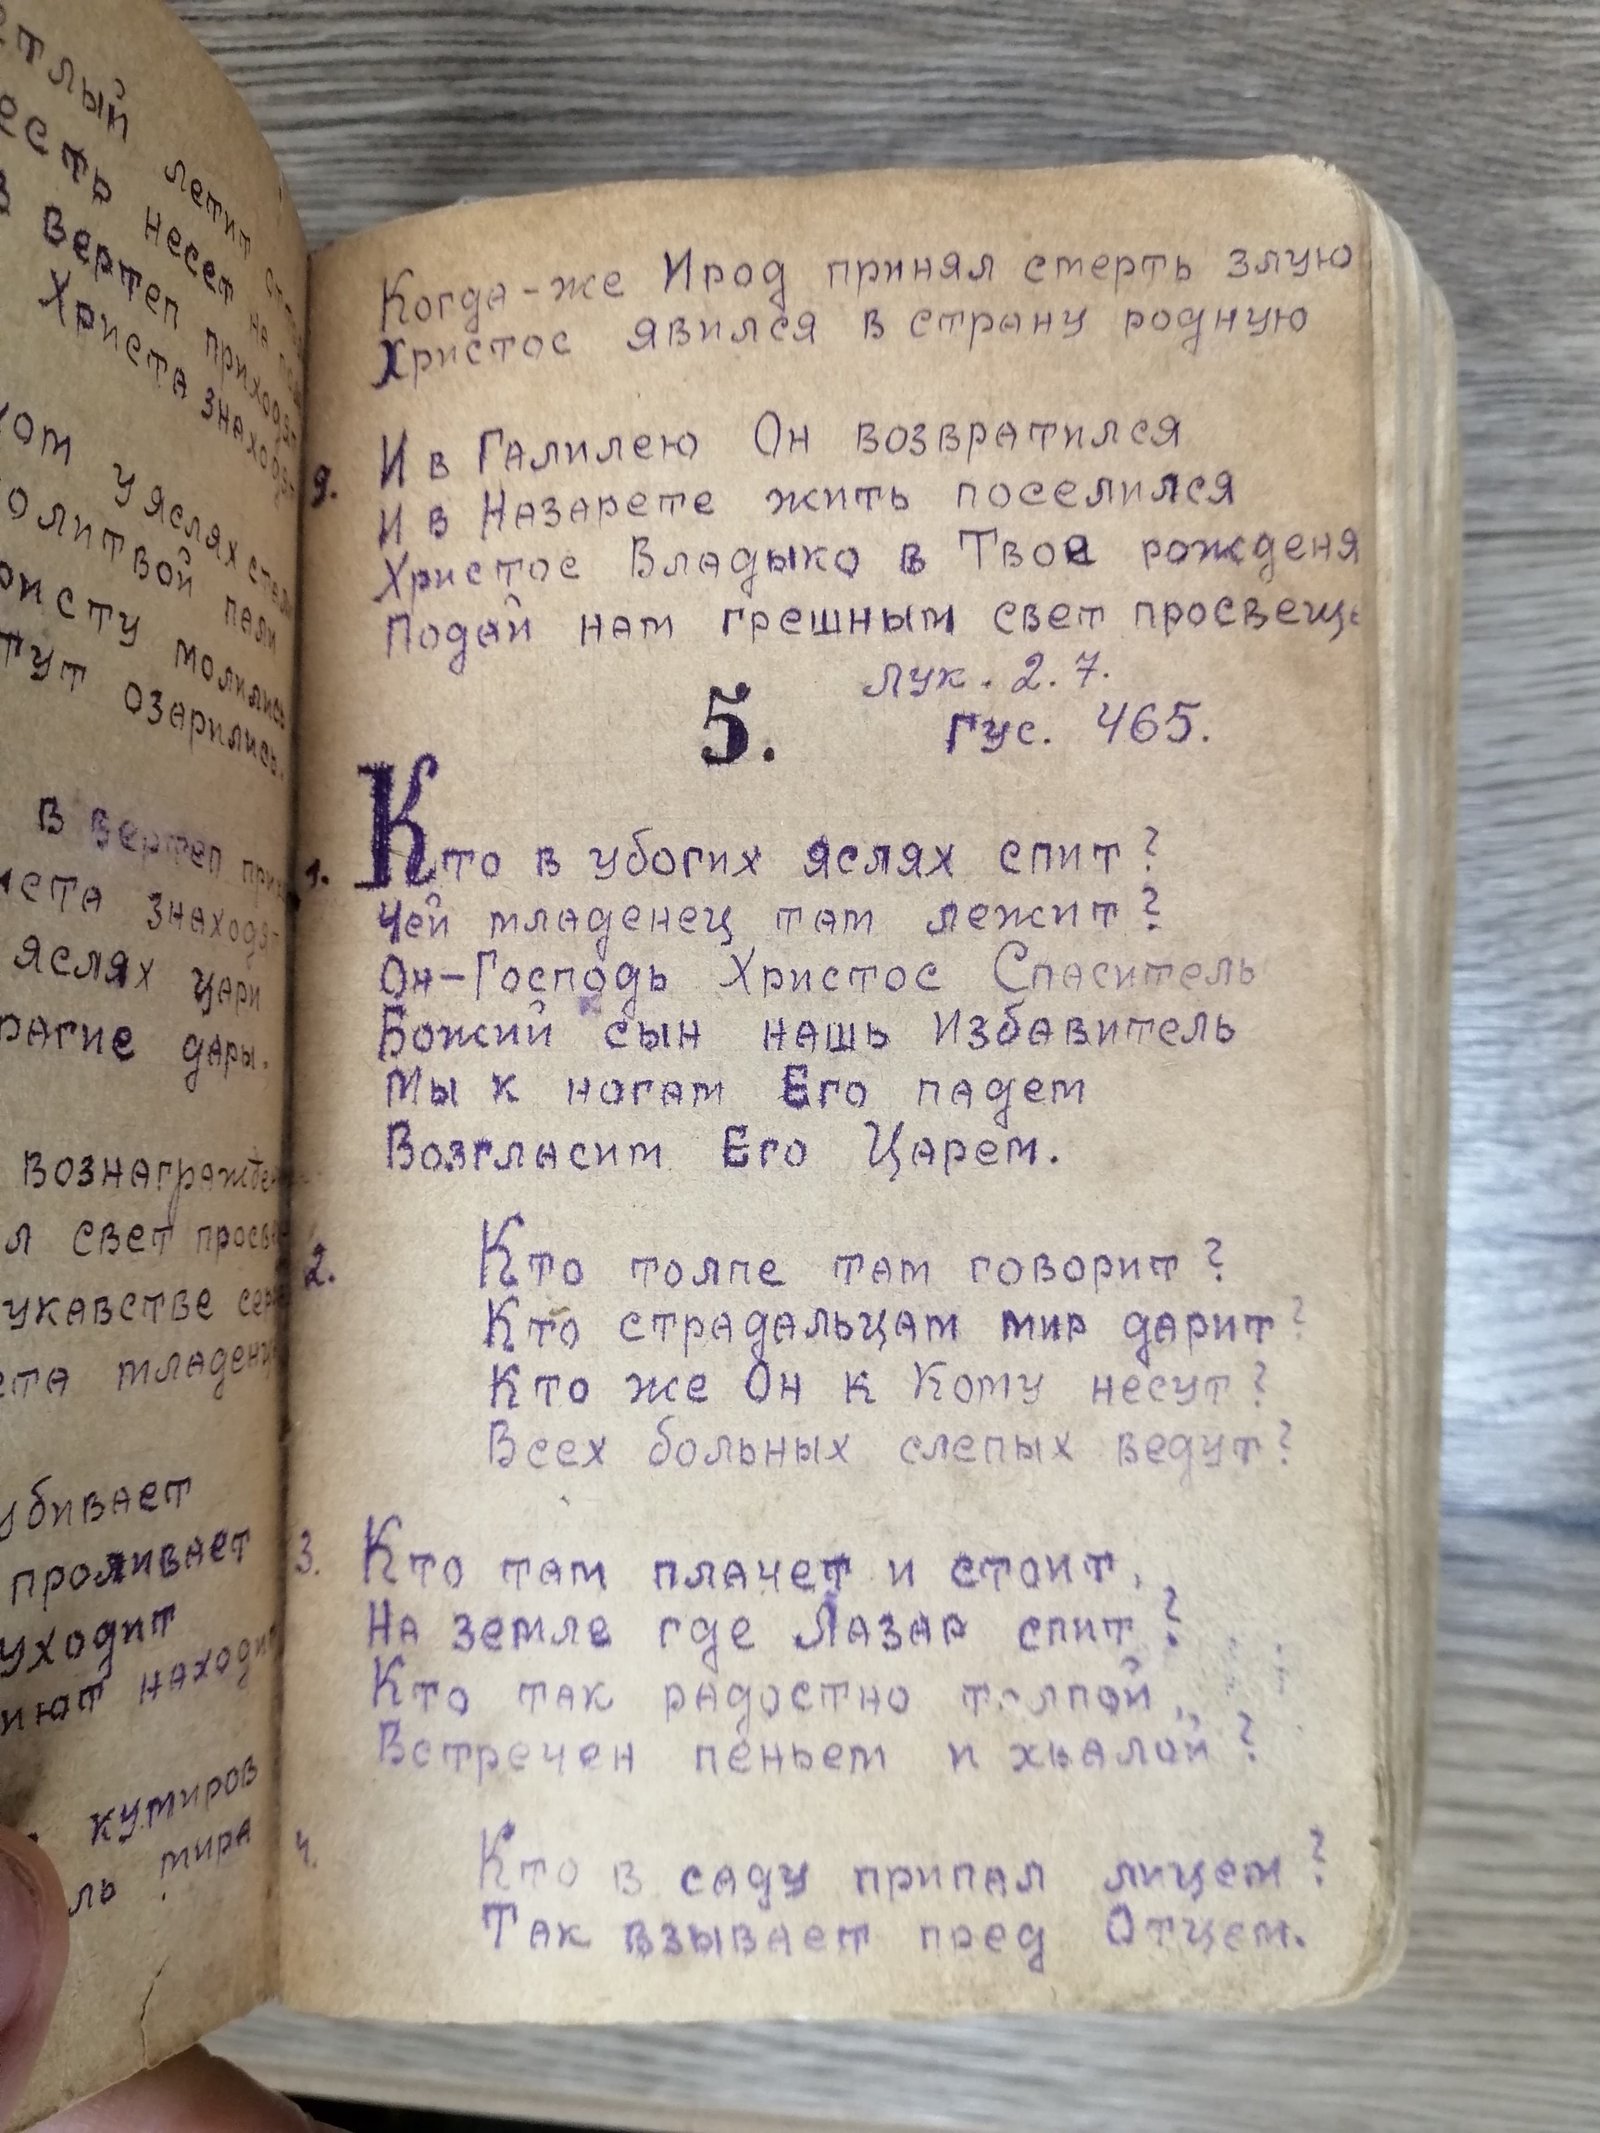 тлый летит
есть несет на
в вертеп приходят
Христа знаходят
у яслях
молитвой пали
молились
тут озарились.
В вертеп
знаходя-
яслях цари
дары.
вознагражде
л свет
укавстве
младен
убивает
проливает
уходит
находит
кумиров
ль мира
Когда-же Ирод принял смерть злую
Христос явился в страну родную
9. И в Галилею Он возвратился
И в Назарете жить поселился
Христос Владыко в Твое рожденя
Подай нам грешным свет просвеще
Лук. 2. 7.
5. Гус. 465.
1. Кто в убогих яслях спит?
Чей младенец там лежит?
Он-Господь Христос Спаситель
Божий сын нашь Избавитель
Мы к ногам Его падем
Возгласим Его Царем.
2. Кто толпе там говорит?
Кто страдальцам мир дарит?
Кто же Он к Кому несут?
Всех больных слепых ведут?
3. Кто там плачет и стоит,
На земле где Лазар спит?
Кто так радостно толпой,
Встречен пеньем и хвалой?
4. Кто в саду припал лицем?
Так взывает пред Отцем.